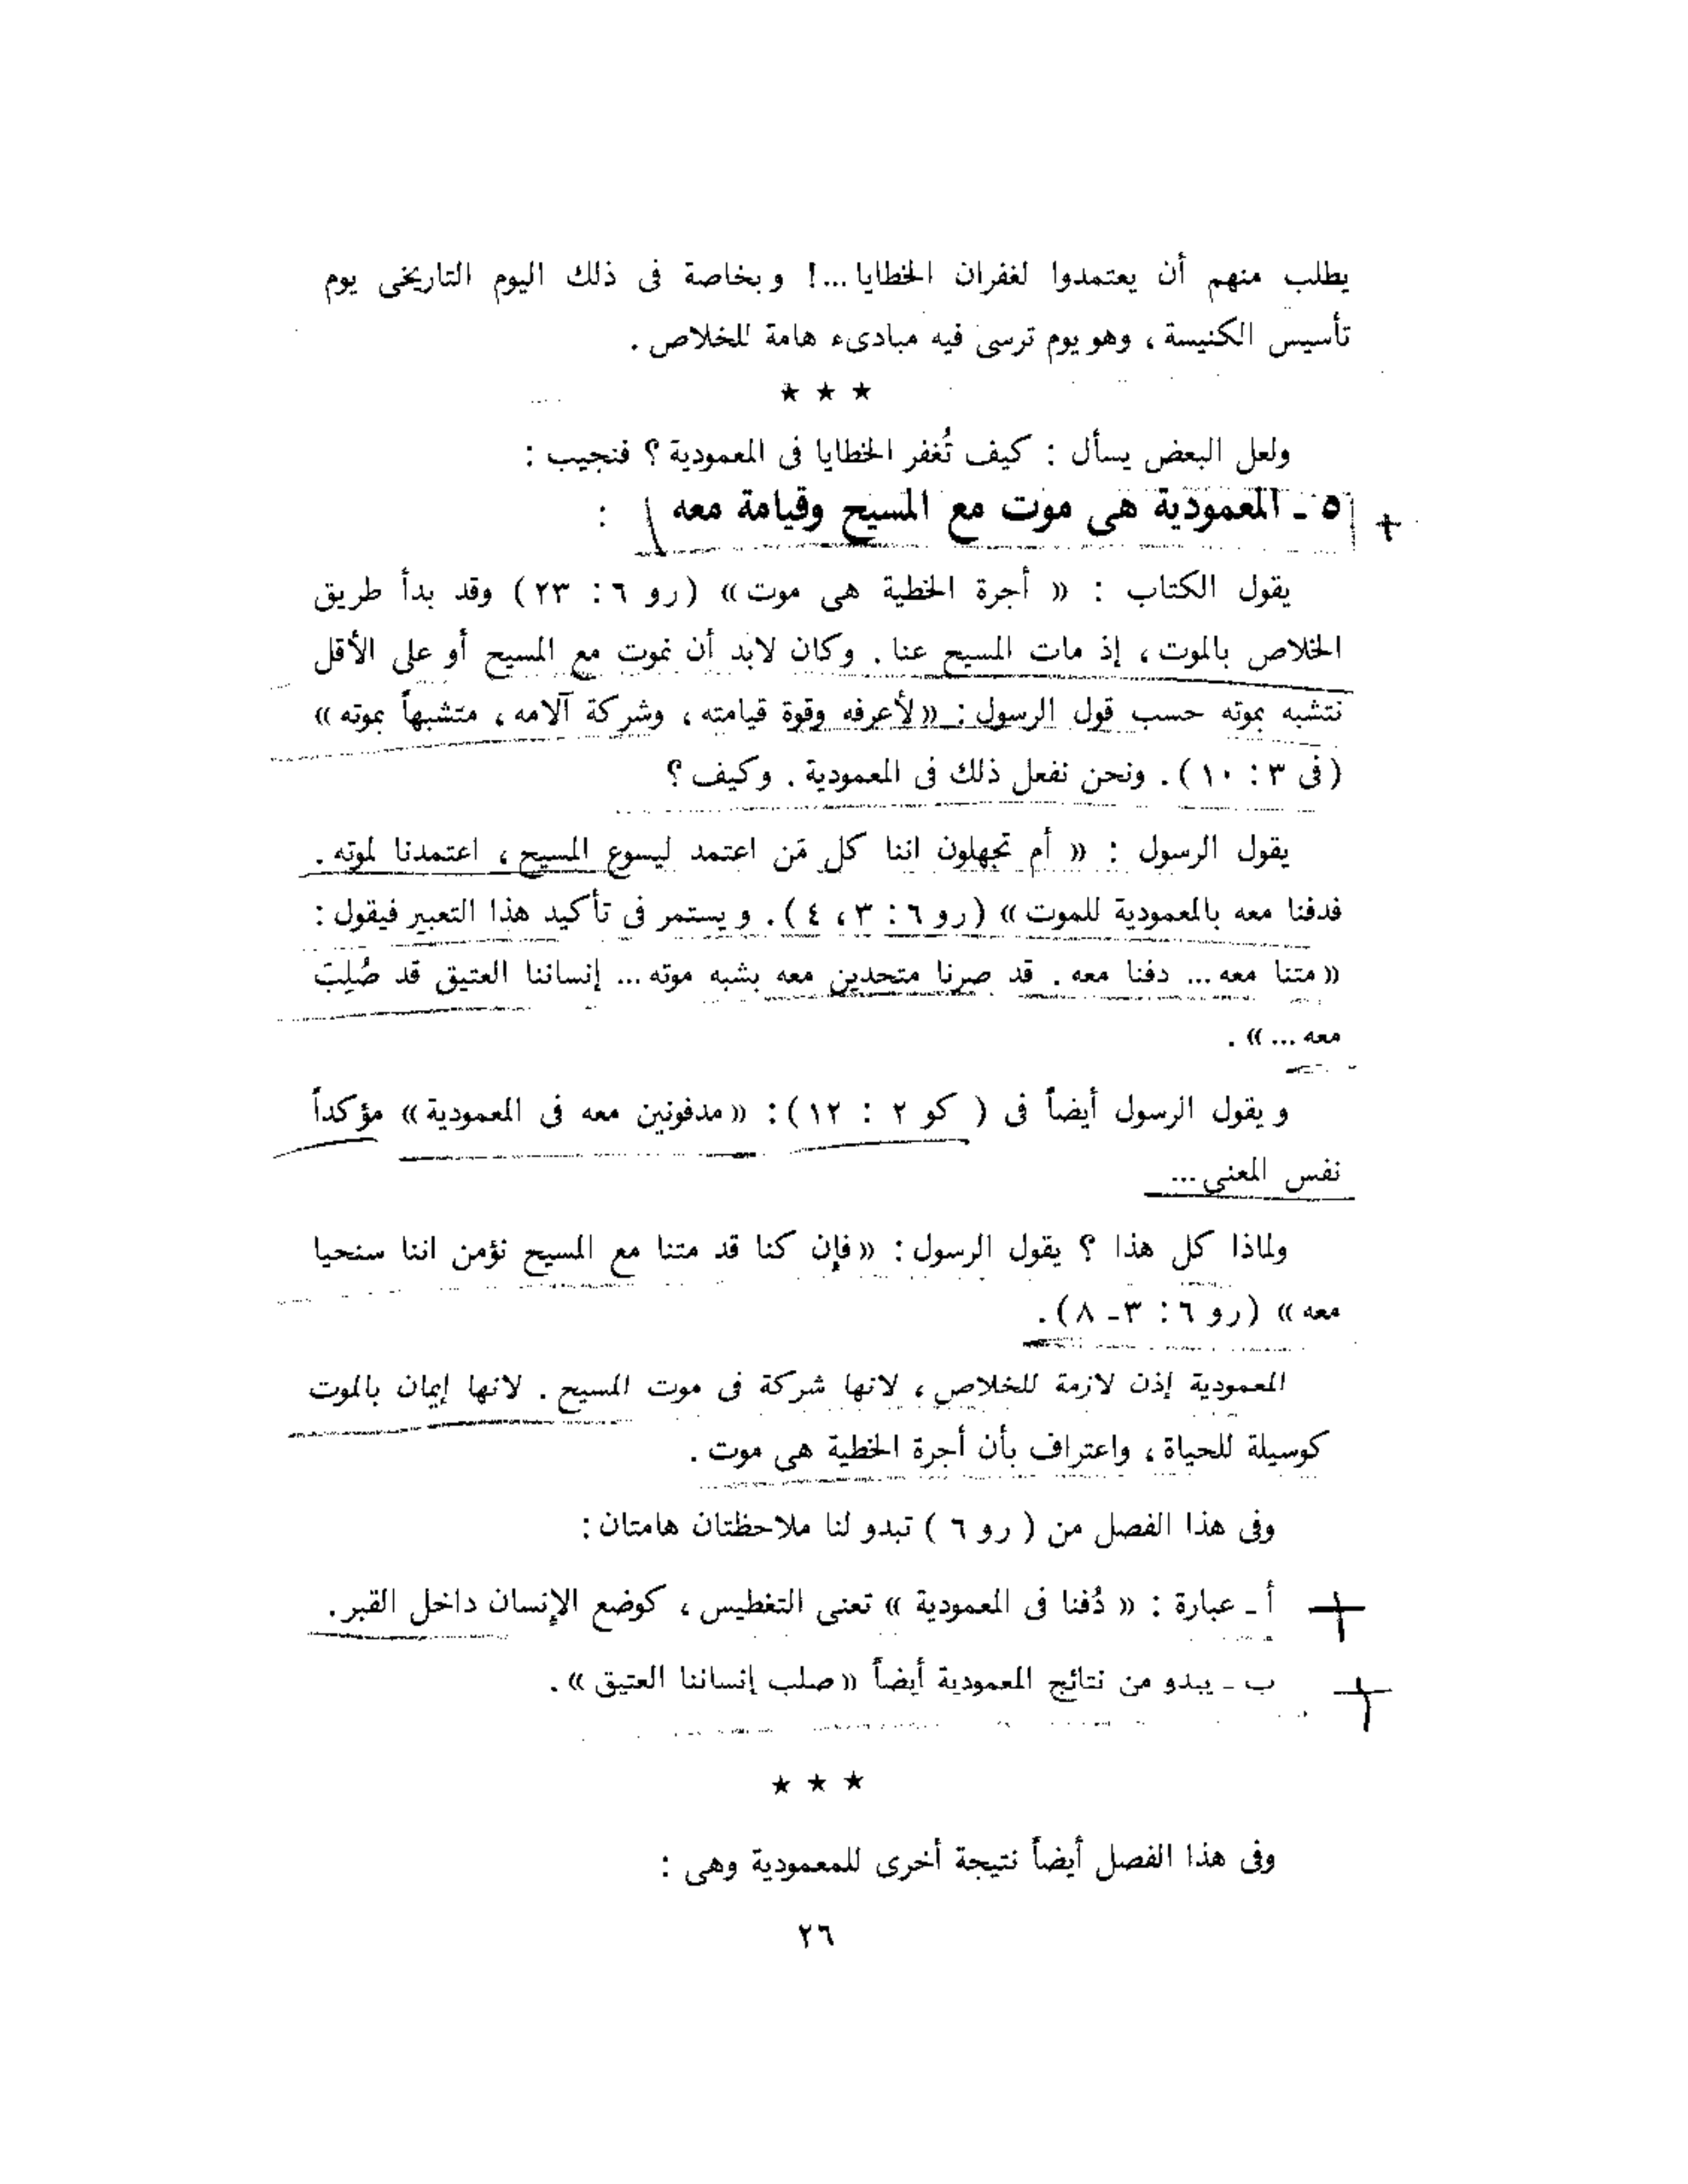 يطلب منهم أن يعتمدوا لغفران الخطايا...! وبخاصة فى ذلك اليوم التاريخى يوم
تأسيس الكنيسة ، وهو يوم ترسى فيه مبادىء هامة للخلاص .
★ ★ ★
ولعل البعض يسأل : كيف تُغفر الخطايا فى المعمودية ؟ فنجيب :
٥ ـ المعمودية هى موت مع المسيح وقيامة معه :
يقول الكتاب : « أجرة الخطية هى موت » (رو ٦ : ٢٣) وقد بدأ طريق
الخلاص بالموت ، إذ مات المسيح عنا . وكان لابد أن نموت مع المسيح أو على الأقل
نتشبه بموته حسب قول الرسول : «لأعرفه وقوة قيامته ، وشركة آلامه ، متشبهاً بموته »
(فى ٣ : ١٠) . ونحن نفعل ذلك فى المعمودية . وكيف ؟
يقول الرسول : « أم تجهلون اننا كل مَن اعتمد ليسوع المسيح ، اعتمدنا لموته .
فدفنا معه بالمعمودية للموت » (رو ٦ : ٣ ، ٤) . ويستمر فى تأكيد هذا التعبير فيقول :
« متنا معه ... دفنا معه . قد صرنا متحدين معه بشبه موته ... إنساننا العتيق قد صُلِبَ
معه ... » .
ويقول الرسول أيضاً فى ( كو ٢ : ١٢) : « مدفونين معه فى المعمودية » مؤكداً
نفس المعنى ...
ولماذا كل هذا ؟ يقول الرسول : « فإن كنا قد متنا مع المسيح نؤمن اننا سنحيا
معه » (رو ٦ : ٣ ـ ٨) .
المعمودية إذن لازمة للخلاص ، لانها شركة فى موت المسيح . لانها إيمان بالموت
كوسيلة للحياة ، واعتراف بأن أجرة الخطية هى موت .
وفى هذا الفصل من ( رو ٦ ) تبدو لنا ملاحظتان هامتان :
أ ـ عبارة : « دُفنا فى المعمودية » تعنى التغطيس ، كوضع الإنسان داخل القبر .
ب ـ يبدو من نتائج المعمودية أيضاً « صلب إنساننا العتيق » .
★ ★ ★
وفى هذا الفصل أيضاً نتيجة أخرى للمعمودية وهى :
٢٦